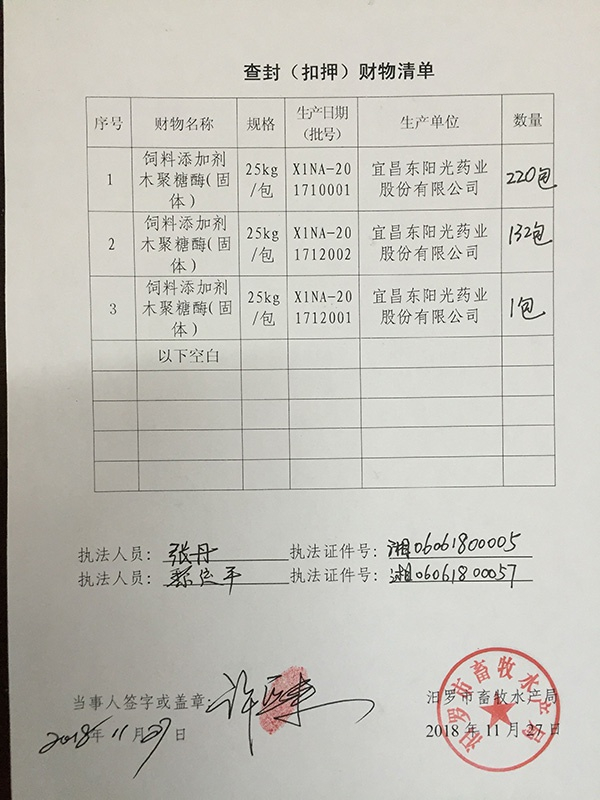 查封（扣押）财物清单
序号 财物名称 规格 生产日期（批号） 生产单位 数量
1 饲料添加剂木聚糖酶(固体) 25kg/包 X1NA-201710001 宜昌东阳光药业股份有限公司 220包
2 饲料添加剂木聚糖酶(固体) 25kg/包 X1NA-201712002 宜昌东阳光药业股份有限公司 132包
3 饲料添加剂木聚糖酶(固体) 25kg/包 X1NA-201712001 宜昌东阳光药业股份有限公司 1包
以下空白
执法人员：张丹 执法证件号：湘06061800005
执法人员： 执法证件号：湘06061800057
当事人签字或盖章：许
2018年11月27日
汨罗市畜牧水产局
2018年11月27日
汨罗市畜牧水产局